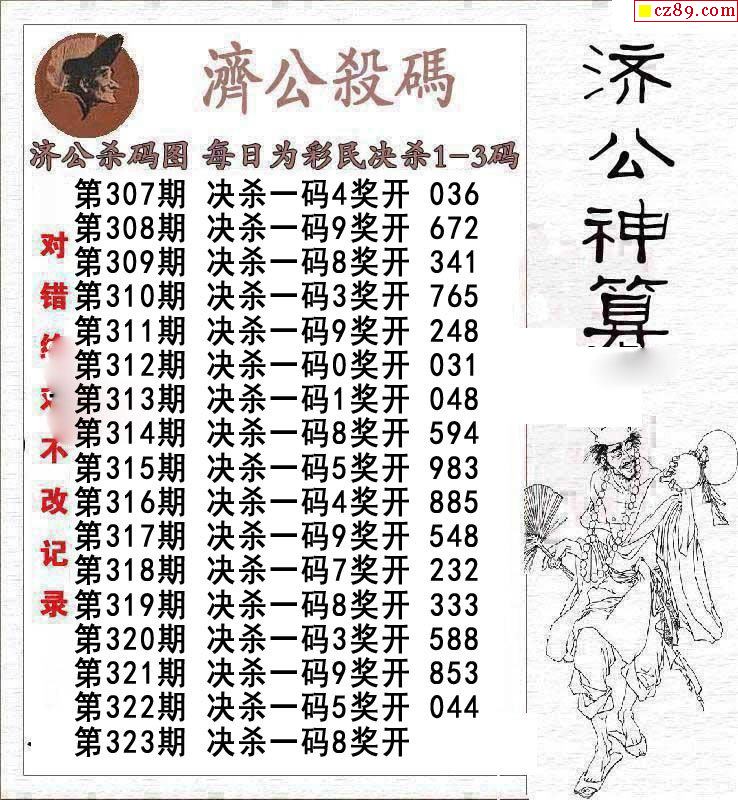 cz89.com
濟公殺碼
济公杀码图 每日为彩民决杀1-3码
第307期 决杀一码4奖开 036
第308期 决杀一码9奖开 672
第309期 决杀一码8奖开 341
第310期 决杀一码3奖开 765
第311期 决杀一码9奖开 248
第312期 决杀一码0奖开 031
第313期 决杀一码1奖开 048
第314期 决杀一码8奖开 594
第315期 决杀一码5奖开 983
第316期 决杀一码4奖开 885
第317期 决杀一码9奖开 548
第318期 决杀一码7奖开 232
第319期 决杀一码8奖开 333
第320期 决杀一码3奖开 588
第321期 决杀一码9奖开 853
第322期 决杀一码5奖开 044
第323期 决杀一码8奖开
对错不改记录
济公神算